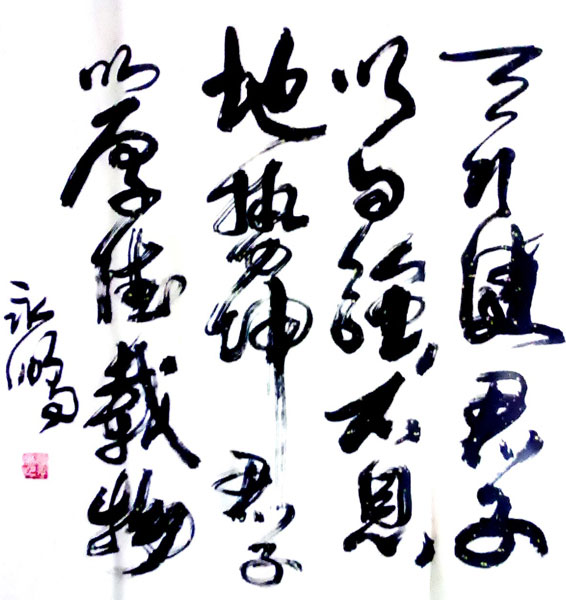 天行健君子
以自強不息
地勢坤君子
以厚德載物
永鵬